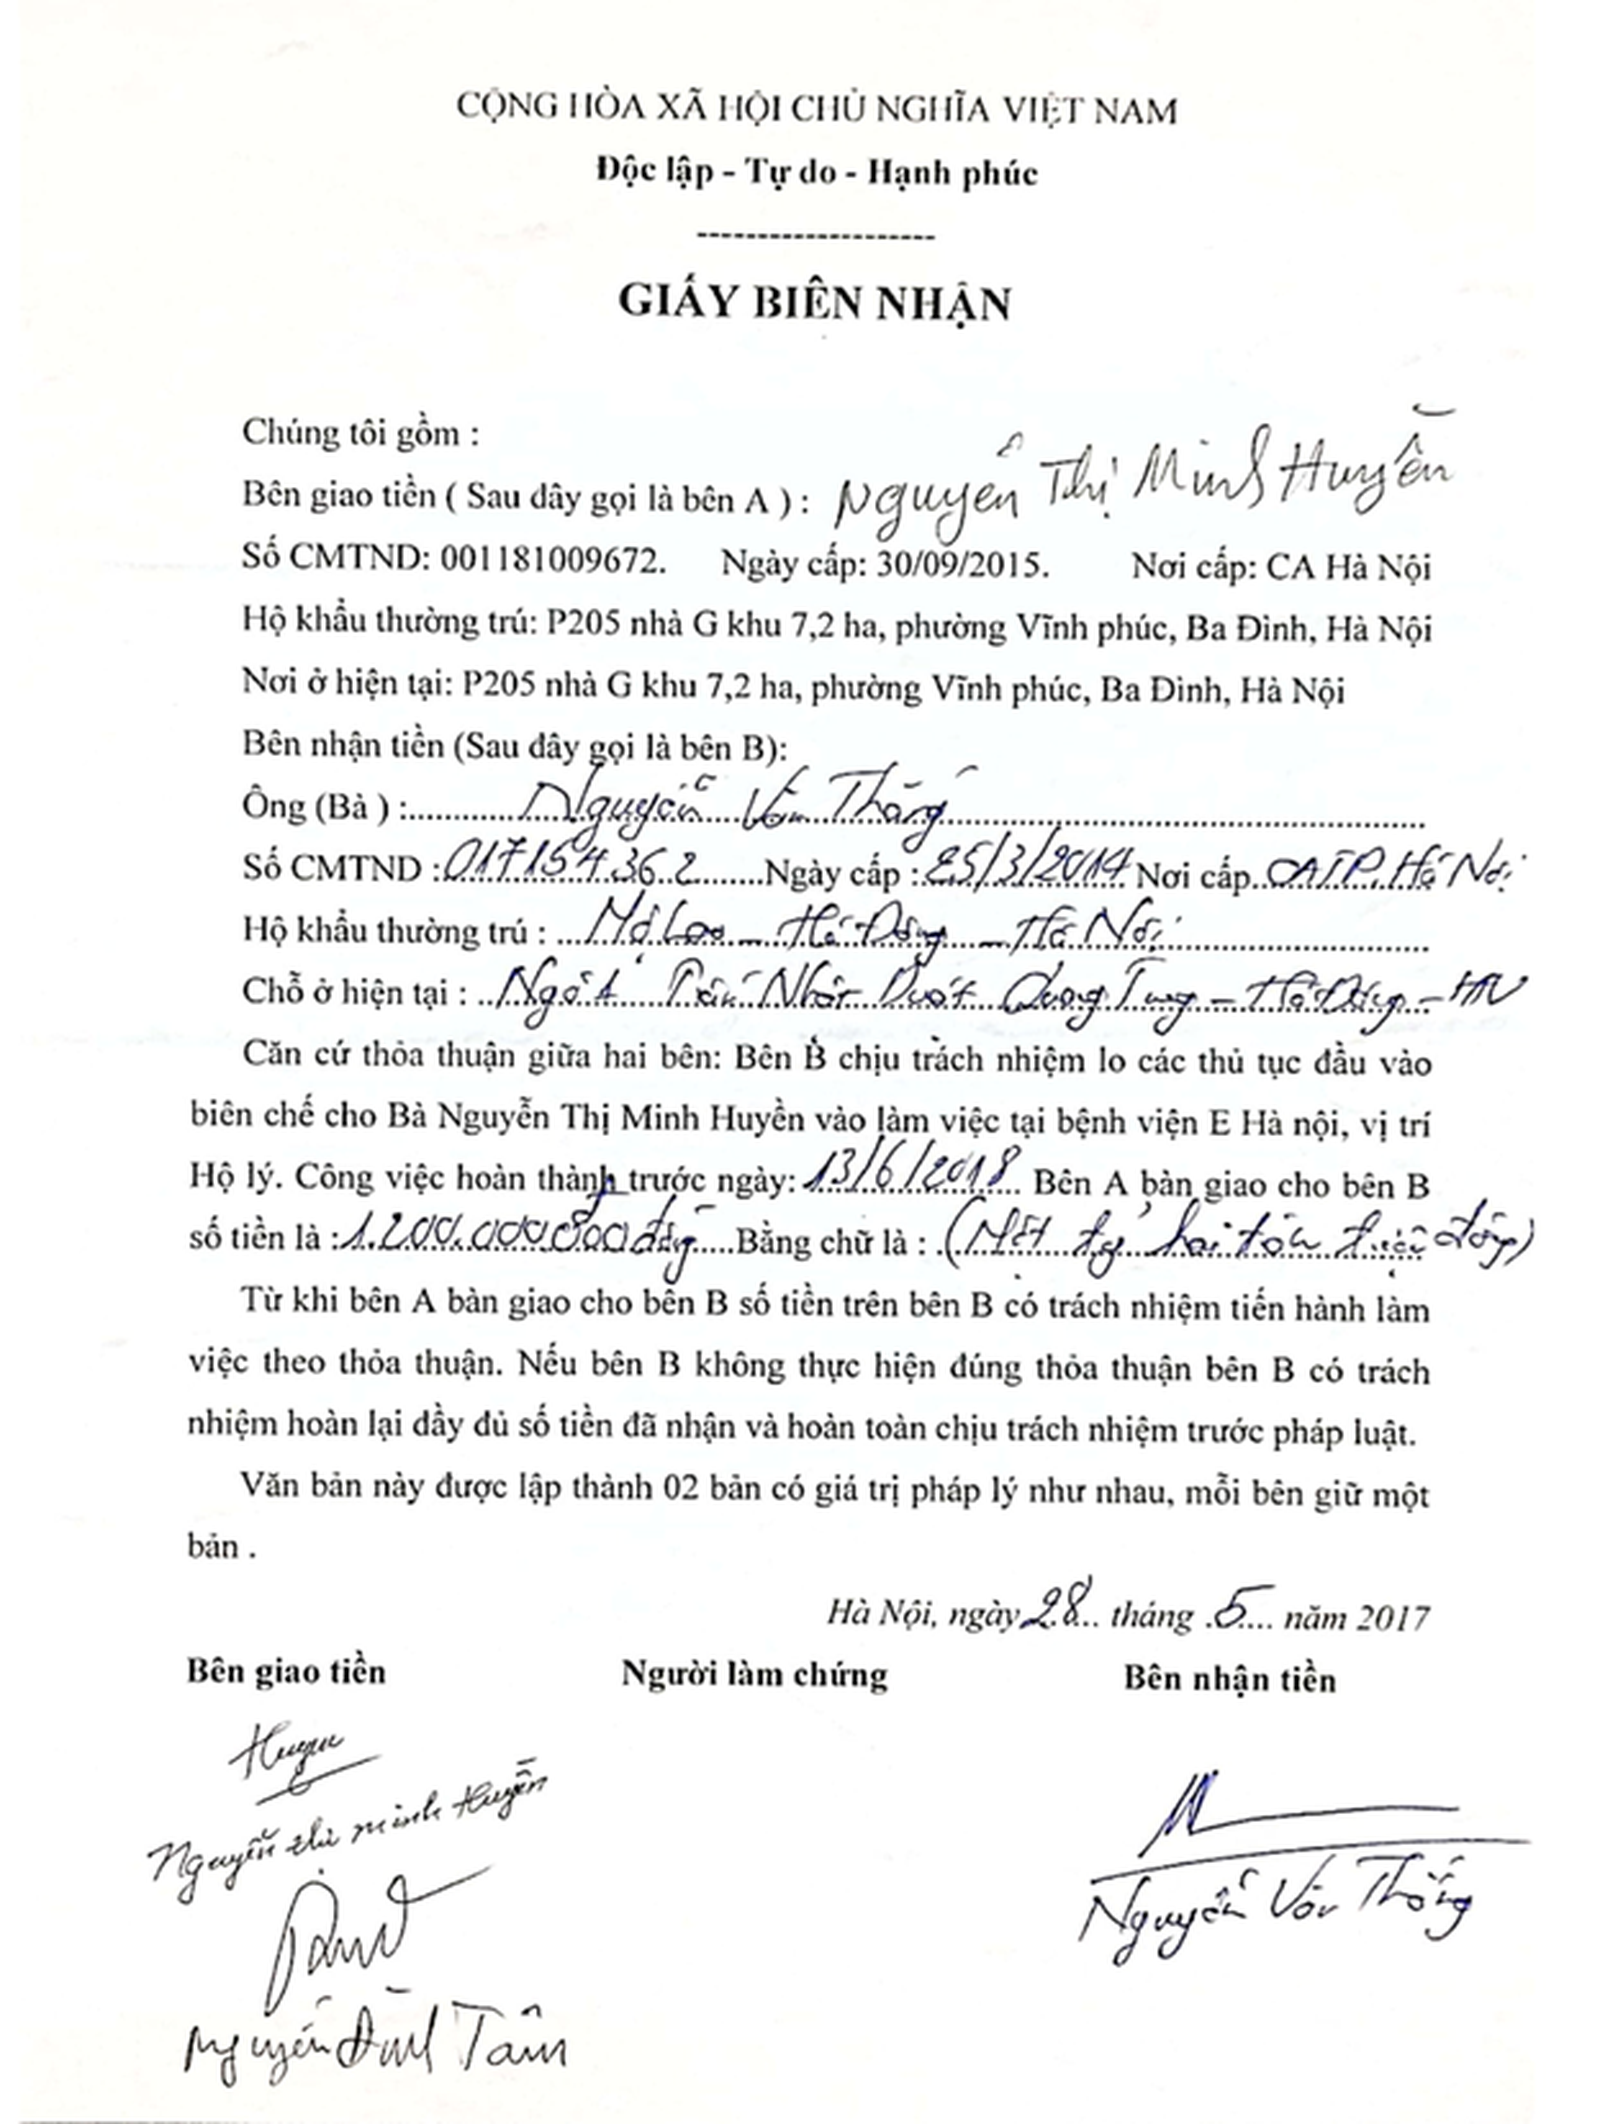 CỘNG HÒA XÃ HỘI CHỦ NGHĨA VIỆT NAM
Độc lập - Tự do - Hạnh phúc
--------------------
GIẤY BIÊN NHẬN
Chúng tôi gồm :
Bên giao tiền ( Sau đây gọi là bên A ) : Nguyễn Thị Minh Huyền
Số CMTND: 001181009672. Ngày cấp: 30/09/2015. Nơi cấp: CA Hà Nội
Hộ khẩu thường trú: P205 nhà G khu 7,2 ha, phường Vĩnh phúc, Ba Đình, Hà Nội
Nơi ở hiện tại: P205 nhà G khu 7,2 ha, phường Vĩnh phúc, Ba Đình, Hà Nội
Bên nhận tiền (Sau đây gọi là bên B):
Ông (Bà ) : Nguyễn Văn Thắng
Số CMTND : 017154362 Ngày cấp : 25/3/2014 Nơi cấp CATP. Hà Nội
Hộ khẩu thường trú : Mộ Lao - Hà Đông - Hà Nội
Chỗ ở hiện tại : Ngõ Nhật Duật Quang Trung - Hà Đông - HN
Căn cứ thỏa thuận giữa hai bên: Bên B chịu trách nhiệm lo các thủ tục đầu vào
biên chế cho Bà Nguyễn Thị Minh Huyền vào làm việc tại bệnh viện E Hà nội, vị trí
Hộ lý. Công việc hoàn thành trước ngày: 13/6/2018 Bên A bàn giao cho bên B
số tiền là : 1.200.000.000 đồng Bằng chữ là : (Một tỷ hai trăm triệu đồng)
Từ khi bên A bàn giao cho bên B số tiền trên bên B có trách nhiệm tiến hành làm
việc theo thỏa thuận. Nếu bên B không thực hiện đúng thỏa thuận bên B có trách
nhiệm hoàn lại đầy đủ số tiền đã nhận và hoàn toàn chịu trách nhiệm trước pháp luật.
Văn bản này được lập thành 02 bản có giá trị pháp lý như nhau, mỗi bên giữ một
bản .
Hà Nội, ngày 28 tháng 5 năm 2017
Bên giao tiền Người làm chứng Bên nhận tiền
Huyền
Nguyễn thị minh Huyền
Nguyễn Văn Thắng
Nguyễn Đình Tâm